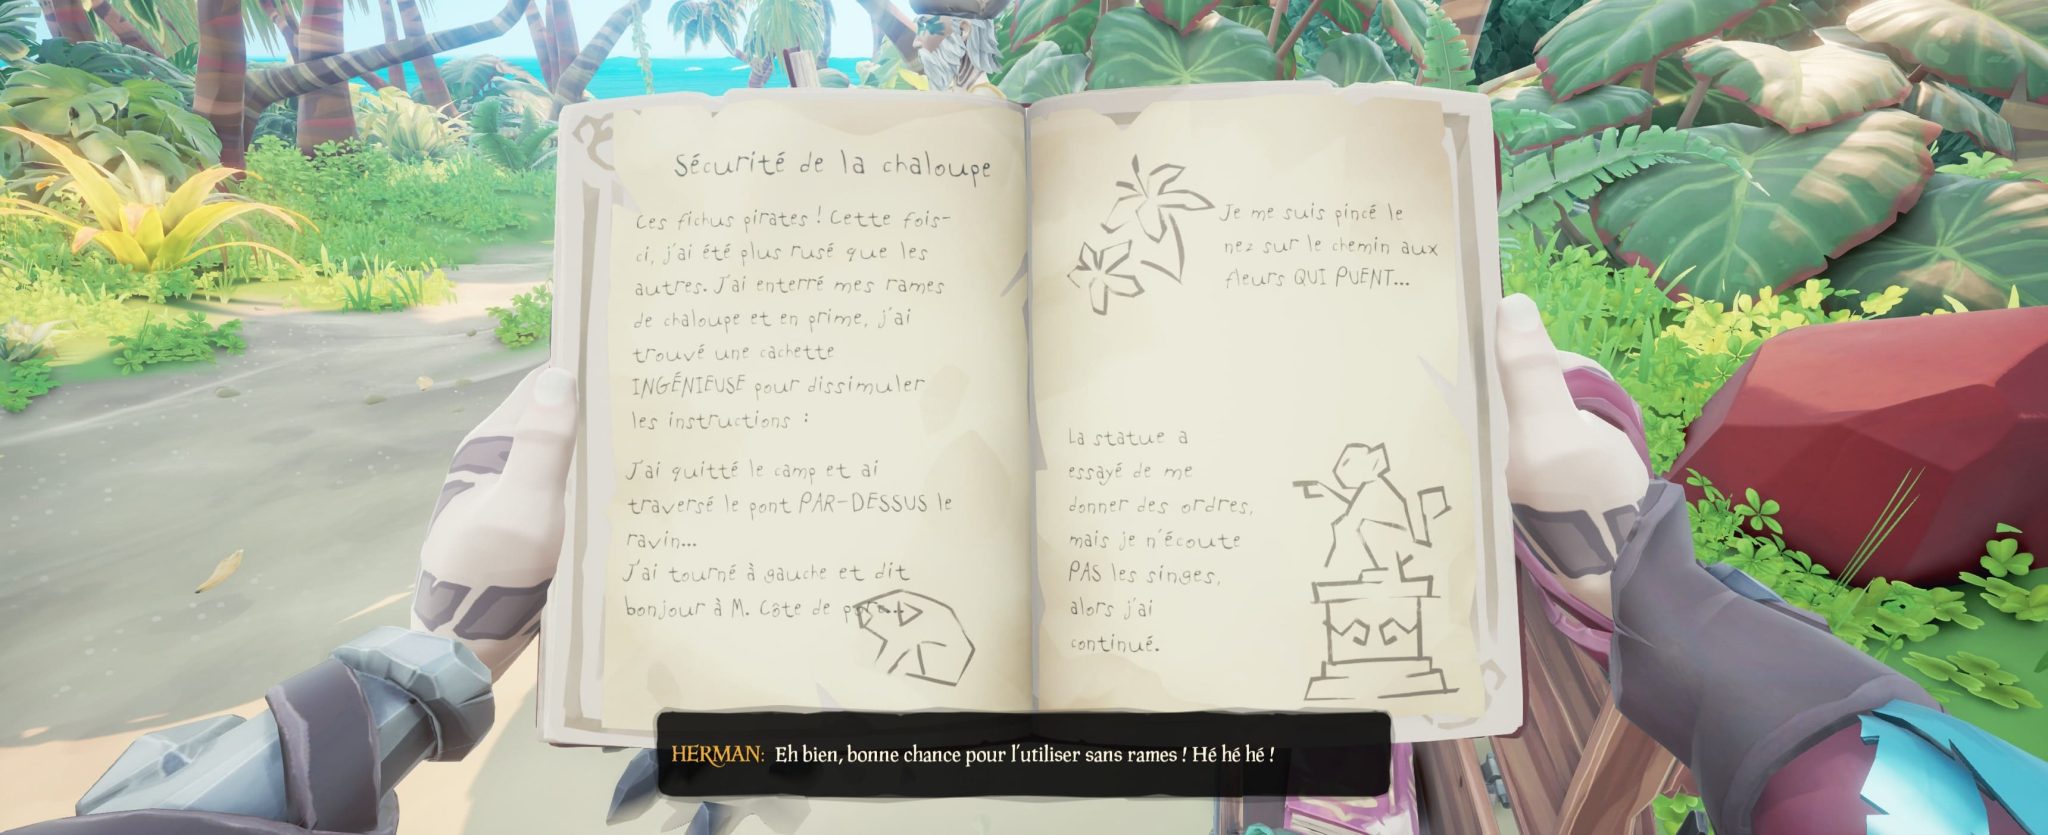 Sécurité de la chaloupe
Ces fichus pirates ! Cette fois-
ci, j'ai été plus rusé que les
autres. J'ai enterré mes rames
de chaloupe et en prime, j'ai
trouvé une cachette
INGÉNIEUSE pour dissimuler
les instructions :
J'ai quitté le camp et ai
traversé le pont PAR-DESSUS le
ravin...
J'ai tourné à gauche et dit
bonjour à M. Côte de
Je me suis pincé le
nez sur le chemin aux
fleurs QUI PUENT...
La statue a
essayé de me
donner des ordres,
mais je n'écoute
PAS les singes,
alors j'ai
continué.
HERMAN: Eh bien, bonne chance pour l'utiliser sans rames ! Hé hé hé !